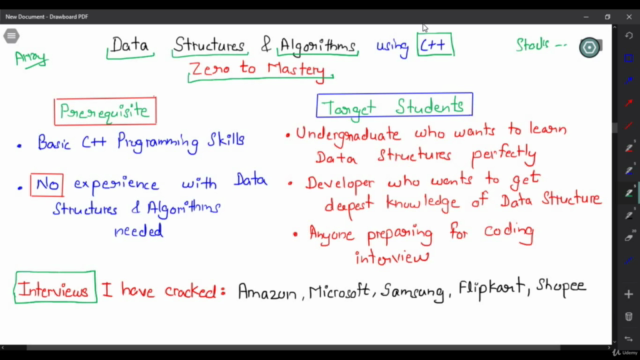 New Document - Drawboard PDF
Array
Data Structures & Algorithms using C++
Stocks --
Zero to Mastery
Prerequisite
Basic C++ Programming Skills
No experience with Data
Structures & Algorithms
needed
Target Students
Undergraduate who wants to learn
Data Structures perfectly
Developer who wants to get
deepest knowledge of Data Structure
Anyone preparing for coding
interview
Interviews I have cracked: Amazon, Microsoft, Samsung, Flipkart, Shopee
Udemy